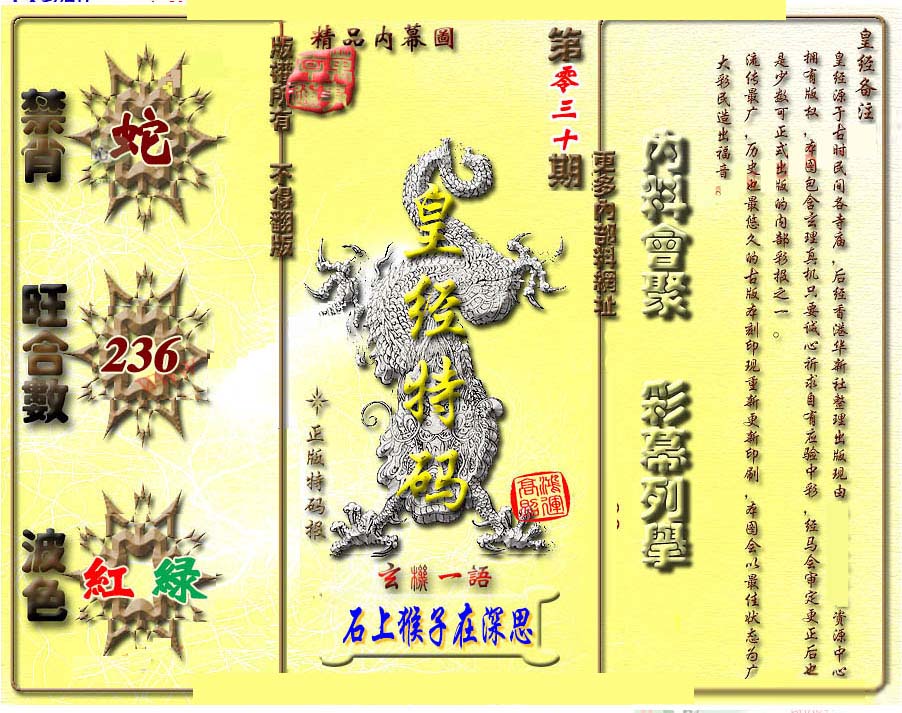 皇经备注
皇经源于古时民间各寺庙，后经香港华新社整理出版现由 资源中心
拥有版权，本图包含玄理真机只要诚心祈求自有应验中彩，经马会审定更正后也
是少数可正式出版的内部彩报之一。
流传最广，历史也最悠久的古版本刻印现重新更新印刷，本图会以最佳状态为广
大彩民造出福音
內料會聚
彩幕列舉
更多內部料網址
第零三十期
精品内幕圖
版谱所有 不得翻版
皇经特码
正版特码报
鸿運高照
玄機一語
石上猴子在深思
禁肖
蛇
旺合數
236
波色
紅 緑